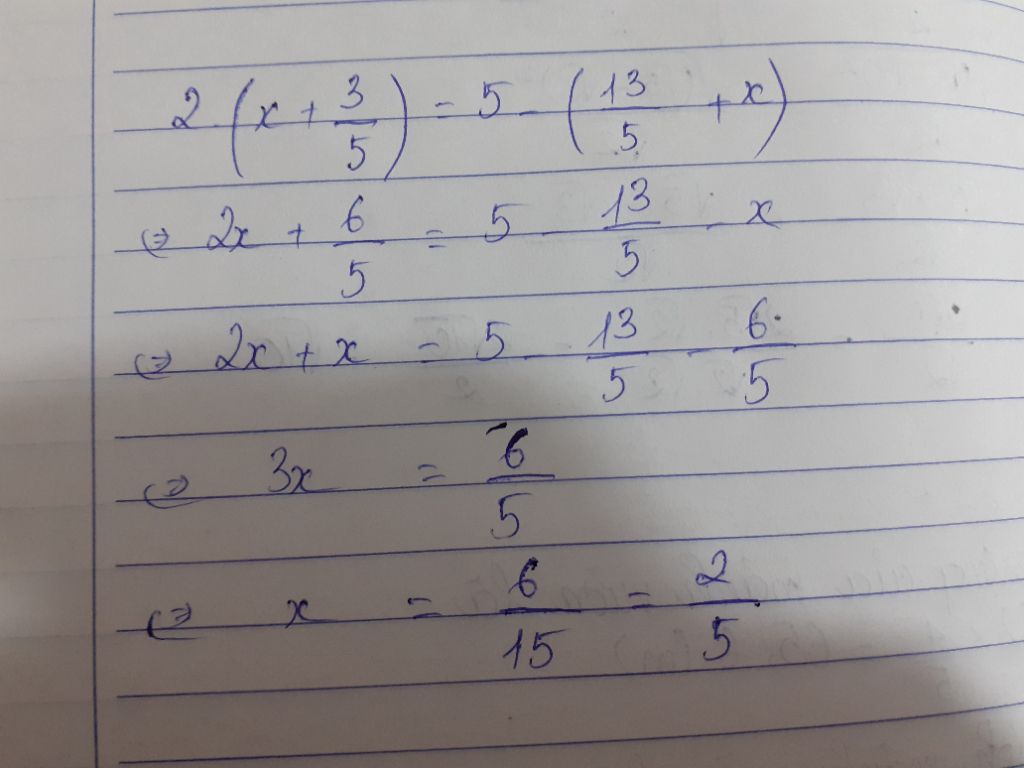 2 (x + 3/5) = 5 - (13/5 + x)
⇔ 2x + 6/5 = 5 - 13/5 - x
⇔ 2x + x = 5 - 13/5 - 6/5
⇔ 3x = 6/5
⇔ x = 6/15 = 2/5